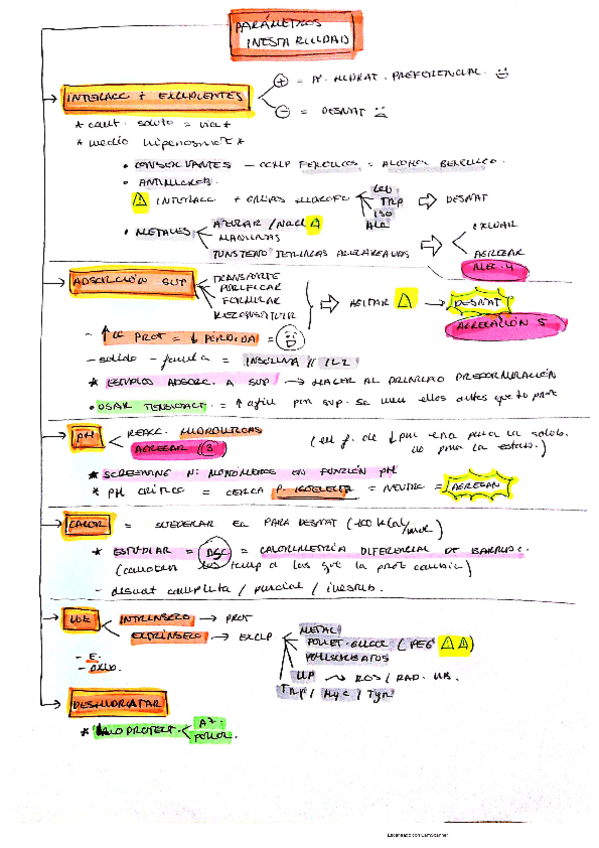 PARÁMETROS
INESTABILIDAD
INTERACC + EXCIPIENTES
+ = Pº HIDRAT. PREFERENCIAL.
- = DESNAT
* cant. soluto =
* medio
• CONSERVANTES - = ALCOHOL BENCILICO.
• ANTIMICROB.
INTERACC + GRUPOS HIDROFO
LEU
TRP
ISO
ALA
DESNAT
• METALES
AZUCAR / NaCl
TUNSTENO JERINGAS PRECARGADAS
OXIDAR
AGREGAR
MEC. 4
ADSORCIÓN SUP
TRANSPORTE
PURIFICAR
FORMULAR
RECONSTITUIR
AGITAR
DESNAT
AGREGACIÓN 5
- ↑ [ ] PROT = ↓ PERDIDA =
- solido - = INSULINA // IL2
* ESTUDIOS ADSORC. A SUP → HACER AL PRINCIPIO PREFORMULACIÓN
• USAR TENSIOACT. = ↑ por sup. Se unen ellos antes que la prot
pH
REACC. HIDROLITICAS
AGREGAR // 3
* SCREENING Nº MONÓMEROS EN FUNCIÓN pH
* PH CRÍTICO = CERCA P. ISOELECTR = NEUTRO = AGREGAN
CALOR = SUPERAR EL PARA DESNAT (100 kcal/mol)
* ESTUDIAR = DSC = CALORIMETRÍA DIFERENCIAL DE BARRIDO.
(conocer las temp a las que la prot cambia)
- desnat completa / parcial /
LUZ
INTRINSECO → PROT
EXTRINSECO → EXCIP
METAL
POLIET-GLICOL (PEG)
POLISORBATOS
- E.
- OXID.
ROS / RAD. LIB.
TRP / / Tyr
DESHIDRATAR
* LIOPROTECT.
AZ.
POLIOL.
Escaneado con CamScanner